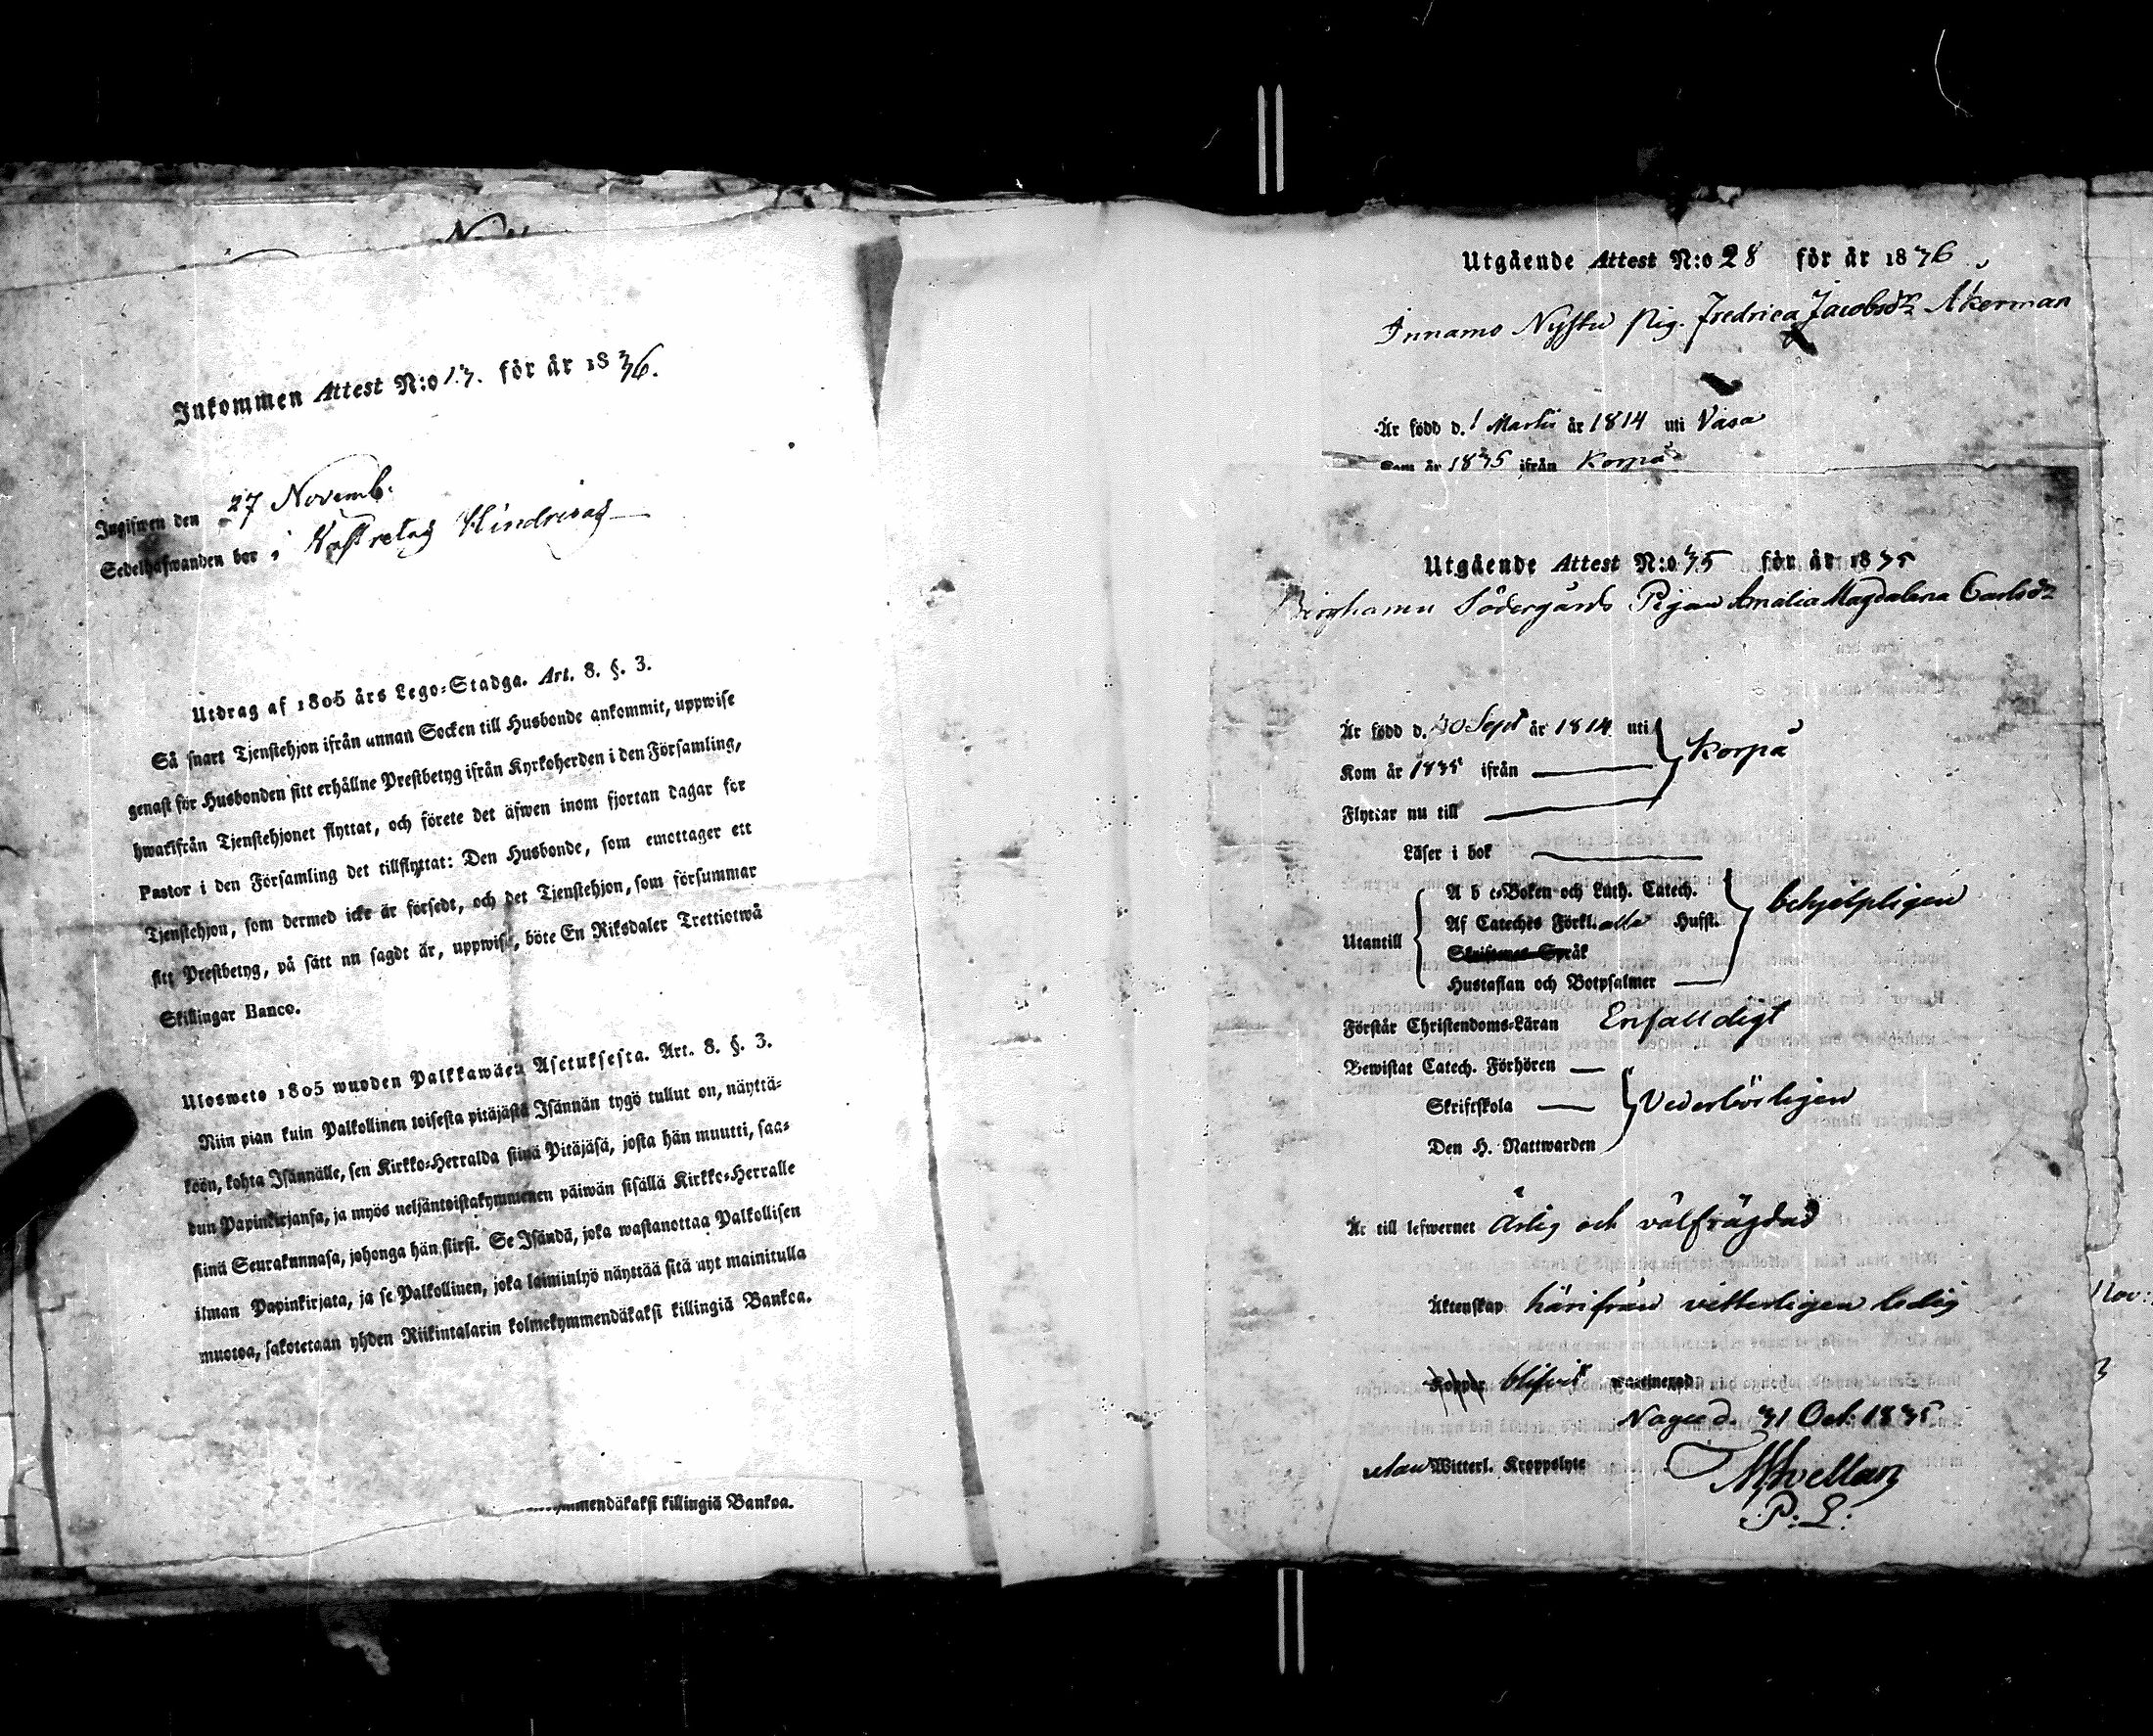 Inkommen Attest N:o 13. för år 1836.
Ingifwen den 27 Novemb.
Sedelhafwanden bor i Hindrics
Utdrag af 1805 års Lego-Stadga. Art. 8. §. 3.
Så snart Tjenstehjon ifrån annan Socken till Husbonde ankommit, uppwise
genast för Husbonden sitt erhållne Prestbetyg ifrån Kyrkoherden i den Församling,
hwarifrån Tjenstehjonet flyttat, och förete det äfwen inom fjortan dagar för
Pastor i den Församling det tillflyttat: Den Husbonde, som emottager ett
Tjenstehjon, som dermed icke är försedt, och det Tjenstehjon, som försummar
sitt Prestbetyg, på sätt nu sagdt är, uppwisa, böte En Riksdaler Trettiotwå
Skillingar Banco.
Ulosweto 1805 wuoden Palkkawäen Asetuksesta. Art. 8. §. 3.
Niin pian kuin Palkollinen toisesta pitäjästä Isännän tygö tullut on, näyttä-
köön, kohta Isännälle, sen Kirkko-Herralda siinä Pitäjäsä, josta hän muutti, saa-
dun Papinkirjansa, ja myös neljäntoistakymmenen päiwän sisällä Kirkko-Herralle
siinä Seurakunnasa, johonga hän siirsi. Se Isändä, joka wastanottaa Palkollisen
ilman Papinkirjata, ja se Palkollinen, joka laiminlyö näyttää sitä nyt mainitulla
muotoa, sakotetaan yhden Riikintalarin kolmekymmendäkaksi killingiä Bankoa.
kymmendäkaksi killingiä Bankoa.
Utgående Attest N:o 28 för år 1836
Innamo Nystu Pig. Fredrica Jacobsdr Åkerman
Är född d. 1 Martii år 1814 uti Vasa
Kom år 1835 ifrån Korpo
Utgående Attest N:o 35 för år 1835
Berghamn Södergårds Pigan Amalia Magdalena Carlsdr
Är född d. 30 Sept år 1814 uti
Korpo
Kom år 1835 ifrån
Flyttar nu till
Läser i bok
A b c-Boken och Luth. Catech.
behjelpligen
Af Cateches Förkl. alla Hufst.
Utantill
Skriftenes Språk
Hustaflan och Botpsalmer
Förstår Christendoms-Läran Enfalldigt
Bewistat Catech. Förhören
Skriftskola Vederbörligen
Den H. Nattwarden
Är till lefwernet Ärlig och välfrägdad
Äktenskap härifrån vetterligen ledig
Koppor blifvit waccinerad
Nagu d. 31 Oct: 1835
utan Witterl. Kroppslyte
P: L:
Nov: